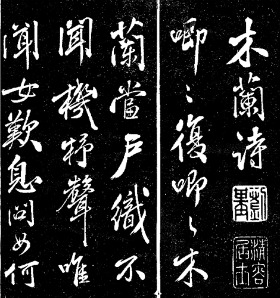 木蘭詩
唧〻復唧〻木
蘭當戶織不
聞機杼聲唯
聞女歎息问女何